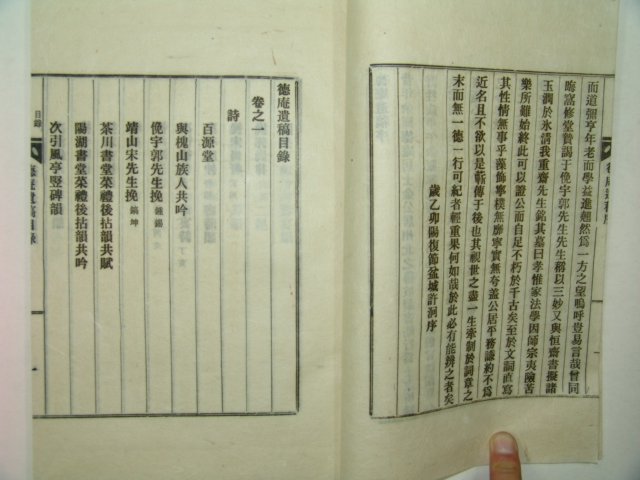 而道彌亨年老而學益進翹然爲一方之望嗚呼豈易言哉曾同
晦窩修堂贊謁于俛宇郭先生先生稱以三妙又與恒齋書擬諸
玉潤於氷淸我重齋先生銘其墓曰孝惟家法學因師宗夷險苦
樂所難始終此可以證公而自足不朽於千古矣至於文詞直寫
其性情無事乎藻飾寧樸無靡寧實無夸盖公居平務謙約不爲
近名且不欲以是蘄傳于後也其視世之盡一生牽制於詞章之
末而無一德一行可紀者輕重果何如哉於此必有能辨之者矣
歲乙卯陽復節盆城許泂序
德庵遺稿目錄
卷之一
詩
百源堂
與槐山族人共吟
俛宇郭先生挽 鍾錫
靖山宋先生挽 鎬坤
茶川書堂菜禮後拈韻共賦
陽湖書堂菜禮後拈韻共吟
次引風亭竪碑韻
目錄